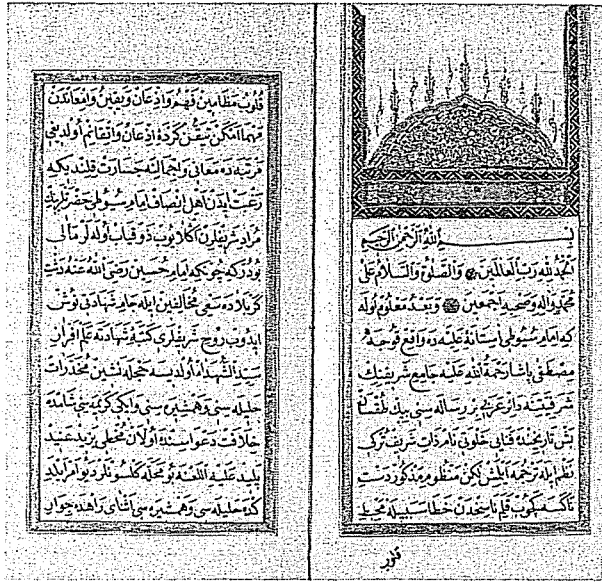 بسم الله الرحمن الرحيم
الحمد لله رب العالمين والصلوة والسلام على
محمد وآله وصحبه اجمعين وبعد معلوم اوله
كه امام سيوطى آستانۀ عليه ده واقع قوجه
مصطفى پاشا رحمة الله عليه جامع شريفينك
شرفيتنه دائر عربى بر رساله سنى بيك طقسان
بش تاريخنده فنايى خلوتى نام ذات شريف تركى
نظم ايله ترجمه ايلمش لكن منظوم مذكور دست
ناكسه كچوب قلم ناسخدن خطا سبيله محيط
قلور
قلوب مظامين فهم واذعان ويقين وامعاندن
فهما امكن تيقن كردۀ اذعان واتقانم اولديغى
مرتبه ده معانى واجمالنه جسارت قلندى كه
رغبت ايدن اهل انصاف امام سيوطى حضرتلرينك
مراد شريفلرن اكلايوب ذوقياب اوله لر مآلى
بودر كه چونكه امام حسين رضى الله عنه دشت
كربلاده سعى مخالفين ايله جام شهادتى نوش
ايدوب روح شريفلرى شهادته علم افراز
سيد الشهدا اولديسه حجله نشين مخدرات
حليله سى وهمشيره سى وايكى كريمه سى شامده
خلافت دعواسنده اولان يزيد عنيد
پليد عليه اللعنه بو محله كلسونلر ديو امر ايلد
كده حليله سى وهمشيره سى اثناى راهده جوار